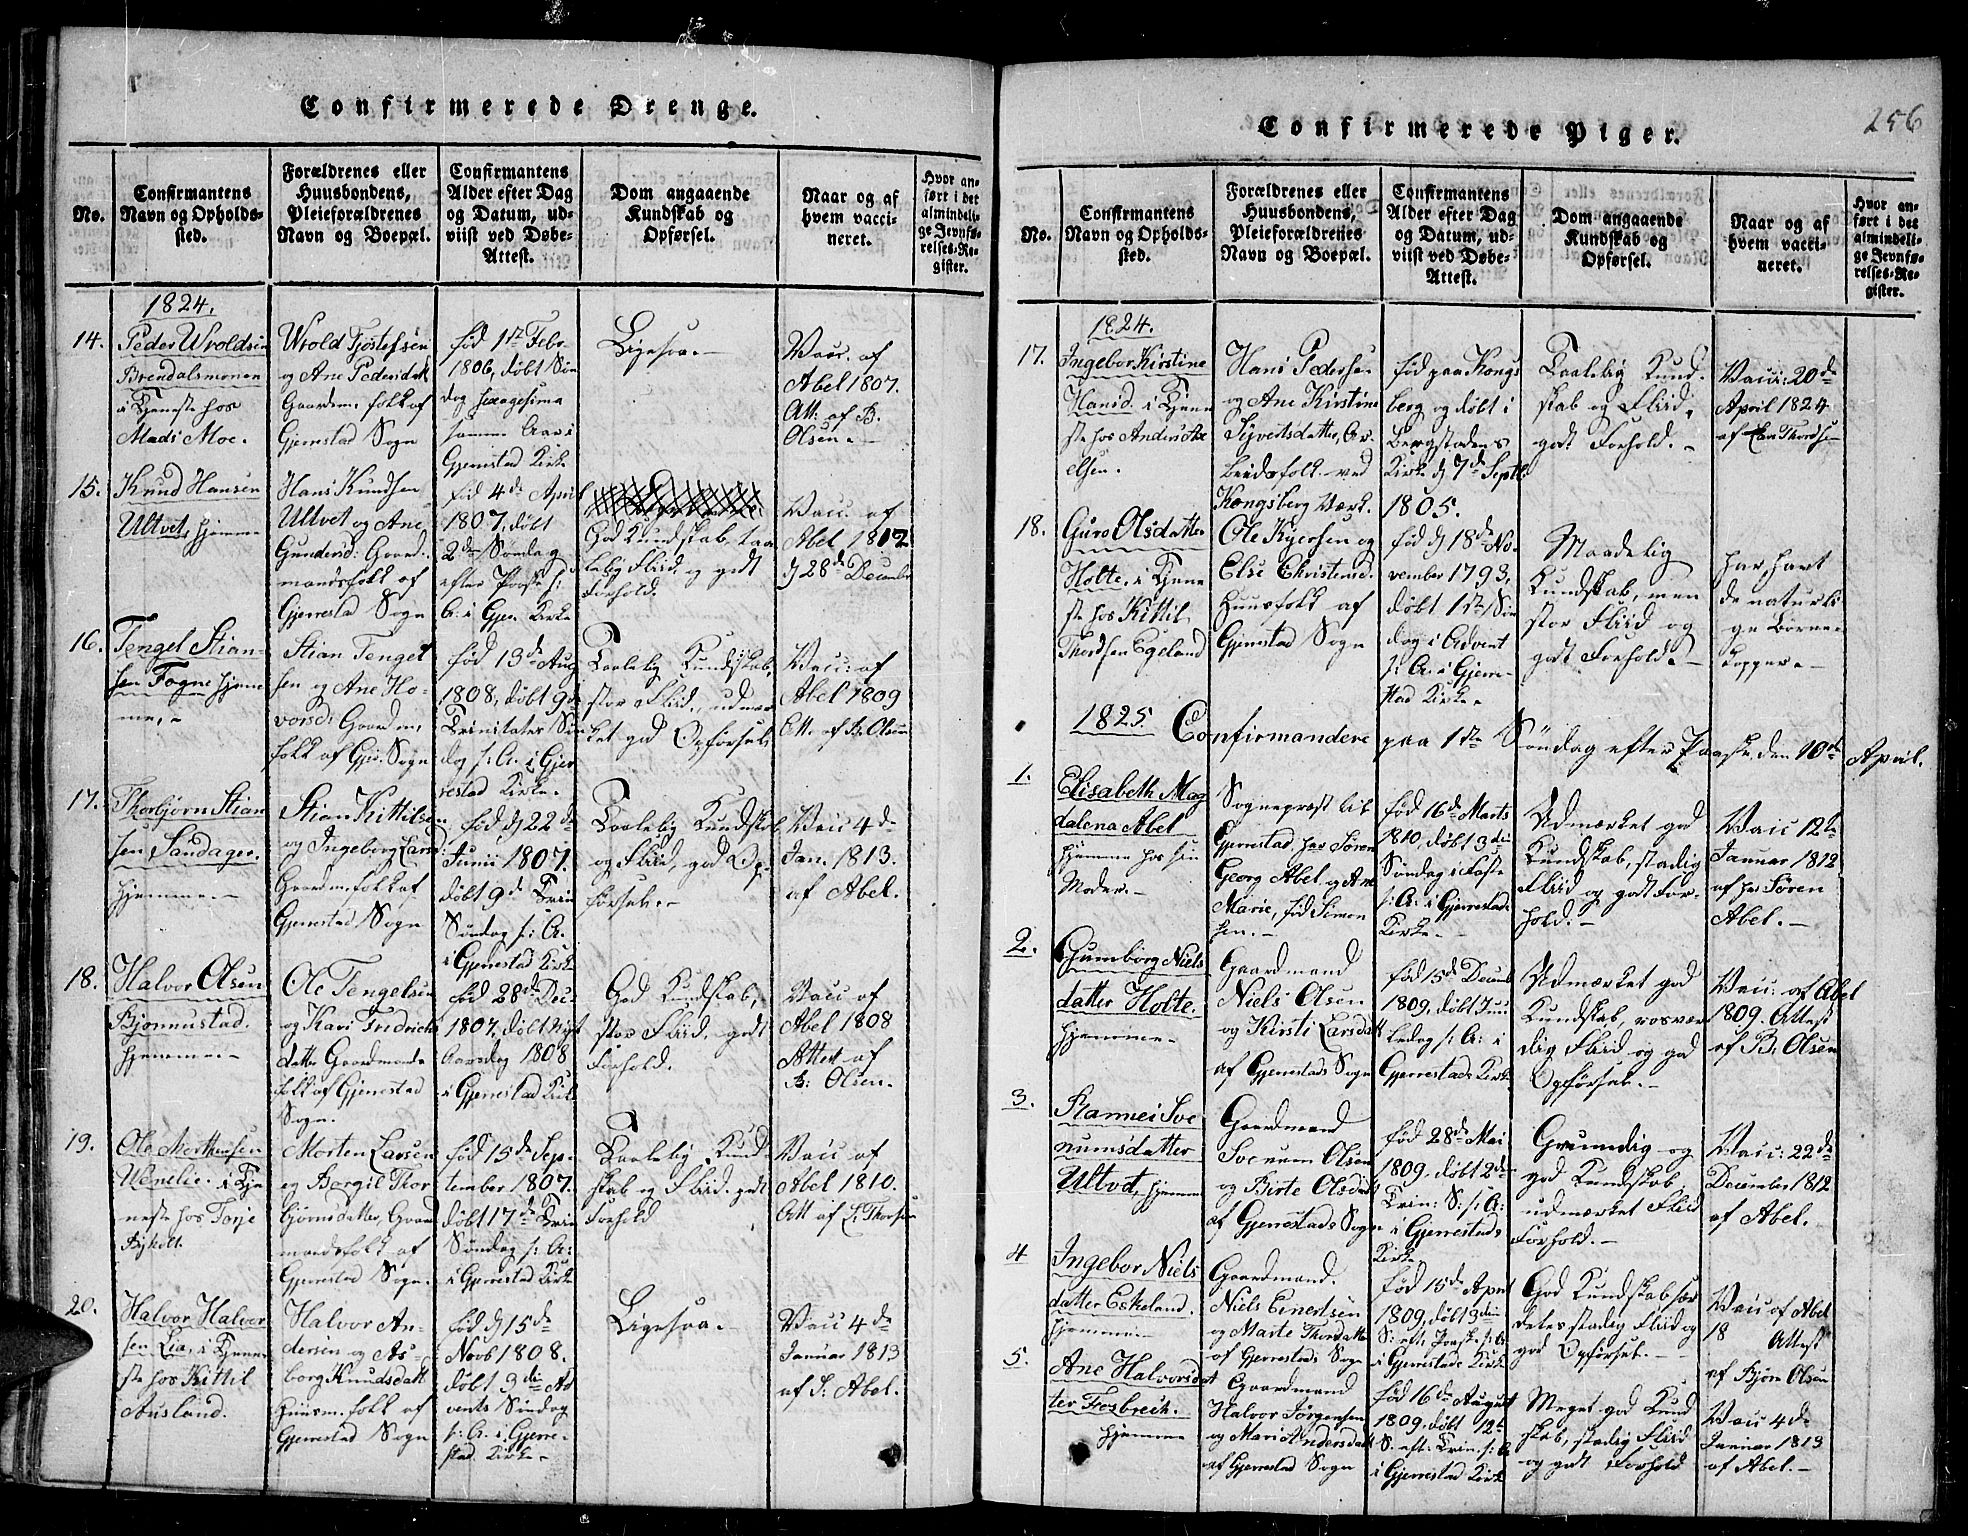 Confirmerede Drenge.
No.
Confirmantens
Navn og Opholds-
sted.
Forældrenes eller
Huusbondens,
Pleieforældrenes
Navn og Boepæl.
Confirmantens
Alder efter Dag
og Datum, ud-
viist ved Døbe-
Attest.
Dom angaaende
Kundskab og
Opførsel.
Naar og af
hvem vacci-
neret.
Hvor an-
ført i det
almindeli-
ge Jevnfø-
relses-Re-
gister.
1824.
14.
Peder Wroldsen
Brendalsmonen
i Tjeneste hos
Mads Moe.
Wrold Tjostelsen
og Ane Pedersdatt
Gaardm. folk af
Gjerrestad Sogn
født 1ste Febr.
1806, døbt Søn
dag sexagesima
samme Aar i
Gjerrestad Kirke
Ligesaa.-
Vacc. af
Abel 1807.
Att. af B.
Olsen.-
15.
Knud Hansen
Ultvet, hjemme
Hans Knudsen
Ultvet og Ane
Gundersd: Gaard-
mandsfolk af
Gjerrestad Sogn
fød 4de April
1807, døbt
2den Søndag
efter Paaske s:
A: i Gjer. Kirke
God Kundskab, taa
lelig Fliid og godt
Forhold.
Vacc. af
Abel 1812
d 28de Decembr
16.
Tengel Stian-
sen Fogne hjem
me.-
Stian Tengel
sen og Ane Ho-
vorsd: Gaardm.
folk af Gjer. Sogn
fød 13de Aug
1808, døbt 9de
Trinitatis Søn
dag s: A. i Gjer
restad Kirke.-
Taalelig Kundskab,
stor Fliid, udmær
ket god Opførsel.
Vacc: af
Abel 1809
Att. af B: Olsen
17.
Thorbjørn Stian
sen Sandager.
hjemme.-
Stian Kittilsen
og Ingeborg Larsd:
Gaardm. folk af
Gjerrestad Sogn
fød d 22de
Junii 1807.
døbt 9de Trin
Søndag s: A.
i Gjerrestad Kirke
Taalelig Kundskab
og Fliid, god Op-
førsel.-
Vacc 4de
Jan. 1813.
af Abel.
18.
Halvor Olsen
Bjonnustad.
hjemme.-
Ole Tengelsen
og Kari Fredriks
datter Gaardmands
folk af Gjerrestad
Sogn.
fød 28de Dec-
1807, døbt Nyt
aarsdag 1808
i Gjerrestad Kirke
God Kundskab,
stor Fliid, godt
Forhold.
Vacc af
Abel 1808
Attest af
B: Olsen.
19.
Ole Morthensen
Wenelie. i Tje
neste hos Terje
Morten Larsen
og Borgil Thor
bjørnsdatter, Gaard
mandsfolk af
Gjerrestad Sogn.
fød 15de Sep-
tember 1807.
døbt 17de Trin
Søndag s: A:
i Gjerrestad Kirke
Taalelig Kund
skab og Fliid. godt
Forhold
Vacc af
Abel 1810.
Att af L: Thorsen
20.
Halvor Halvor
sen Lia, i Tjene
ste hos Kittil
Ausland.
Halvor An-
dersen og As-
borg Knudsdatt
Huusm. folk af
Gjerrestad Sogn
fød d 15de
Novb 1808.
døbt 3die Ad
vents Søndag
s: A: i Gjerre-
stad Kirke-
Ligesaa.-
Vacc 4de
Januar 1813
af S. Abel.
256
Confirmerede Piger.
No.
Confirmantens
Navn og Opholds-
sted.
Forældrenes eller
Huusbondens,
Pleieforældrenes
Navn og Boepæl.
Confirmantens
Alder efter Dag
og Datum, ud-
viist ved Døbe-
Attest.
Dom angaaende
Kundskab og
Opførsel.
Naar og af
hvem vacci-
neret.
Hvor an-
ført i det
almindeli-
ge Jevnfø-
relses-Re-
gister.
1824.
17.
Ingebor Kirstine
Hansd. i Tjene
ste hos Anders Ax
elsen.
Hans Pedersen
og Ane Kirstine
Syvertsdatter, Ar-
beidsfolk ved
Kongsberg Værk.
født paa Kongs
berg og døbt i
Bergstadens
Kirke d 7de Septb
1805.
Taalelig Kund-
skab og Fliid,
godt Forhold.-
Vacc: 20de
April 1824
af Thordsen
18.
Guro Olsdatter
Holte, i Tjene
ste hos Kittil
Thordsen Egeland
Ole Kjersen og
Else Christensd.
Huusfolk af
Gjerrestad Sogn
fød d 18de No-
vember 1793,
døbt 1ste Søn
dag i Advent
s: A: i Gjerre-
stad Kirke.
Maadelig
Kundskab, men
stor Fliid og
godt Forhold.-
har havt
de naturli
ge Børne-
kopper.-
1825. Confirmandere paa 1ste Søndag efter Paaske, den 10de April.
1.
Elisabeth Mag
dalena Abel
hjemme hos sin
Moder.-
Sognepræst til
Gjerrestad, her Søren
Georg Abel og Ane
Marie, fød Simon
sen.-
fød 16de Marts
1810, døbt 3die
Søndag i Faste
s: A: i Gjerrestads
Kirke.
Udmærket god
Kundskab, stadig
Fliid og godt For-
hold.-
Vacc 12te
Januar 1812
af hr Søren
Abel.-
2.
Gumborg Niels
datter Holte.
hjemme-
Gaardmand
Niels Olsen
og Kirsti Larsdatt
af Gjerrestads Sogn
fød 15de Decemb
1809, døbt Juu
ledag s: A: i
Gjerrestads Kirke
Udmærket god
Kundskab, rosvær
dig Fliid og god
Opførsel.-
Vacc: af Abel
1809. Attest
af B: Olsen
3.
Rannei Sve
numsdatter
Ultvet, hjemme
Gaardmand
Svenum Olsen
og Birte Olsdatt
af Gjerrestads Sogn
fød 28de Mai
1809, døbt 2den
Trin: S: s: A:
i Gjerrestads
Kirke
Grundig og
god Kundskab,
udmærket Fliid
Forhold.-
Vacc: 22de
December 1812
af Abel.-
4
Ingebor Niels
datter Eskeland.
hjemme-
Gaardmand.
Niels Enertsen
og Marte Thordsdatter
af Gjerrestads Sogn
fød 15de April
1809, døbt 3die
S: eft: Paaske s: A:
i Gjerrestads Kirke
God Kundskab
stadig Fliid og
god Opførsel.-
Vacc af Abel
18 Attest
af Bjørn Olsen
5.
Ane Halvorsdat
ter Fosbreck.
hjemme
Gaardmand
Halvor Jørgensen
og Mari Andersdatt
af Gjerrestad Sogn
fød 16de August
1809, døbt 12te
S: eft: Trin: s: A
i Gjerrestad Kirke
Meget god Kund
skab, stadig Fliid
og godt Forhold
Vacc 4de
Januar 1813
af Abel.-